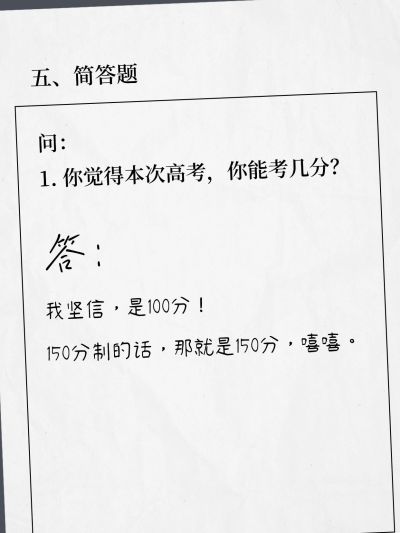 五、简答题
问：
1. 你觉得本次高考，你能考几分？
答：
我坚信，是100分！
150分制的话，那就是150分，嘻嘻。